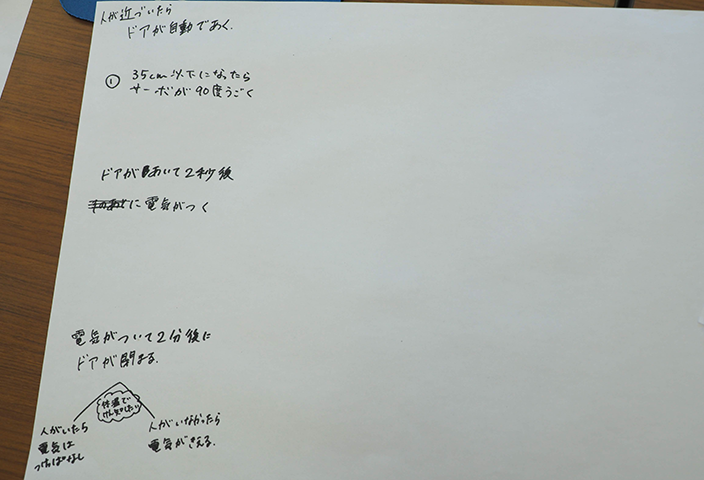 人が近づいたら
ドアが自動であく.
① 35cm以下になったら
サーボが90度うごく
ドアがあいて2秒後
に電気がつく
電気がついて2分後に
ドアが閉まる.
体温で
けんちしたい
人がいたら
電気は
つけっぱなし
人がいなかったら
電気がきえる.